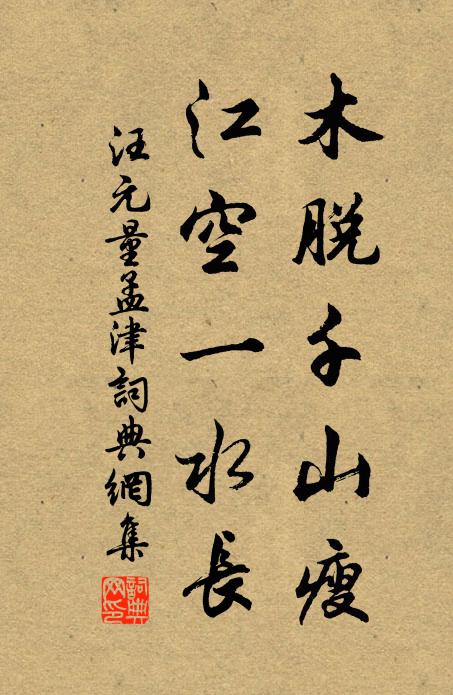 木脱千山瘦
江空一水長
汪元量孟津詞典網集
詞典網印